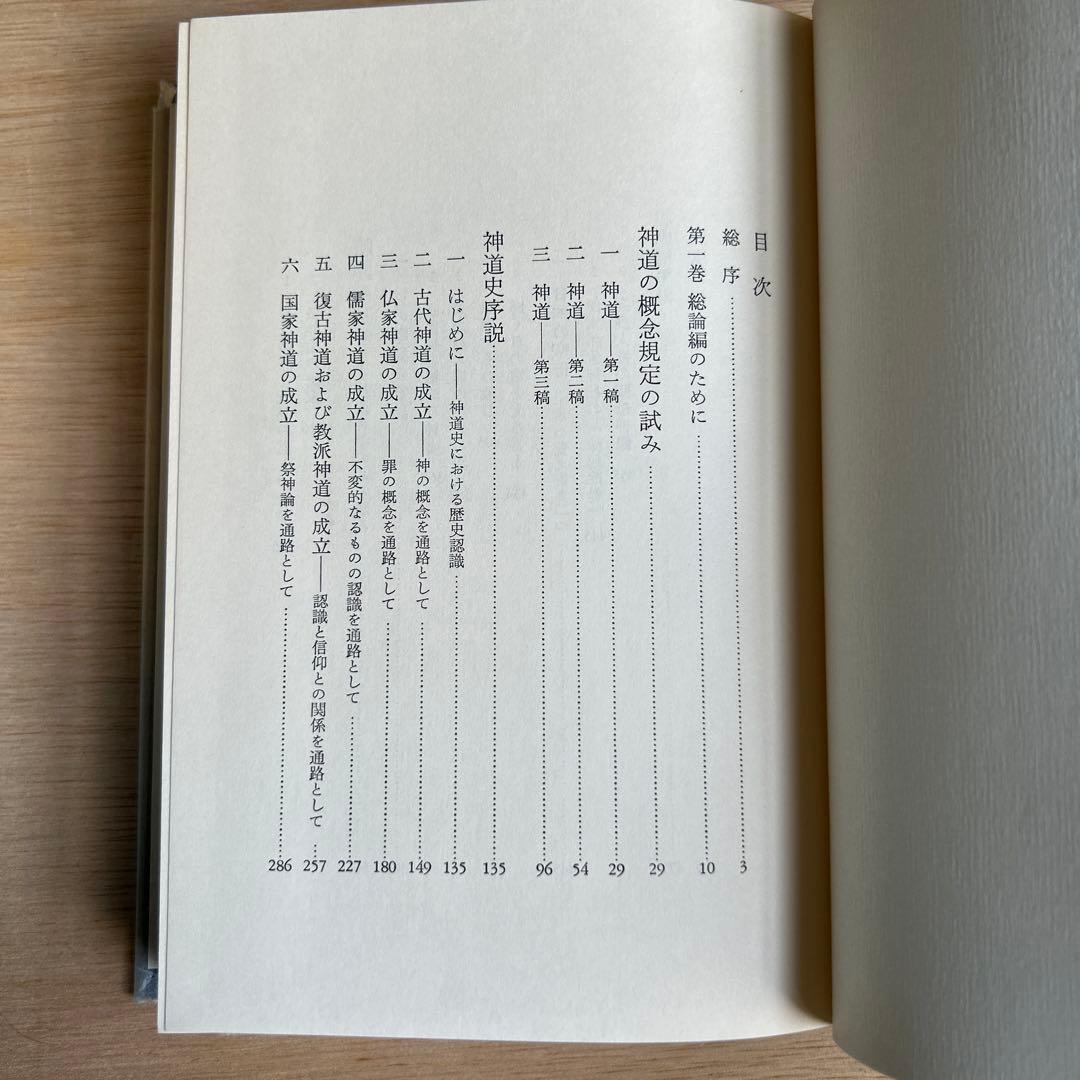 目次
総序……3
第一巻 総論編のために……10
神道の概念規定の試み……29
一 神道――第一稿……29
二 神道――第二稿……54
三 神道――第三稿……96
神道史序説……135
一 はじめに――神道史における歴史認識……135
二 古代神道の成立――神の概念を通路として……149
三 仏家神道の成立――罪の概念を通路として……180
四 儒家神道の成立――不変的なるものの認識を通路として……227
五 復古神道および教派神道の成立――認識と信仰との関係を通路として…257
六 国家神道の成立――祭神論を通路として……286